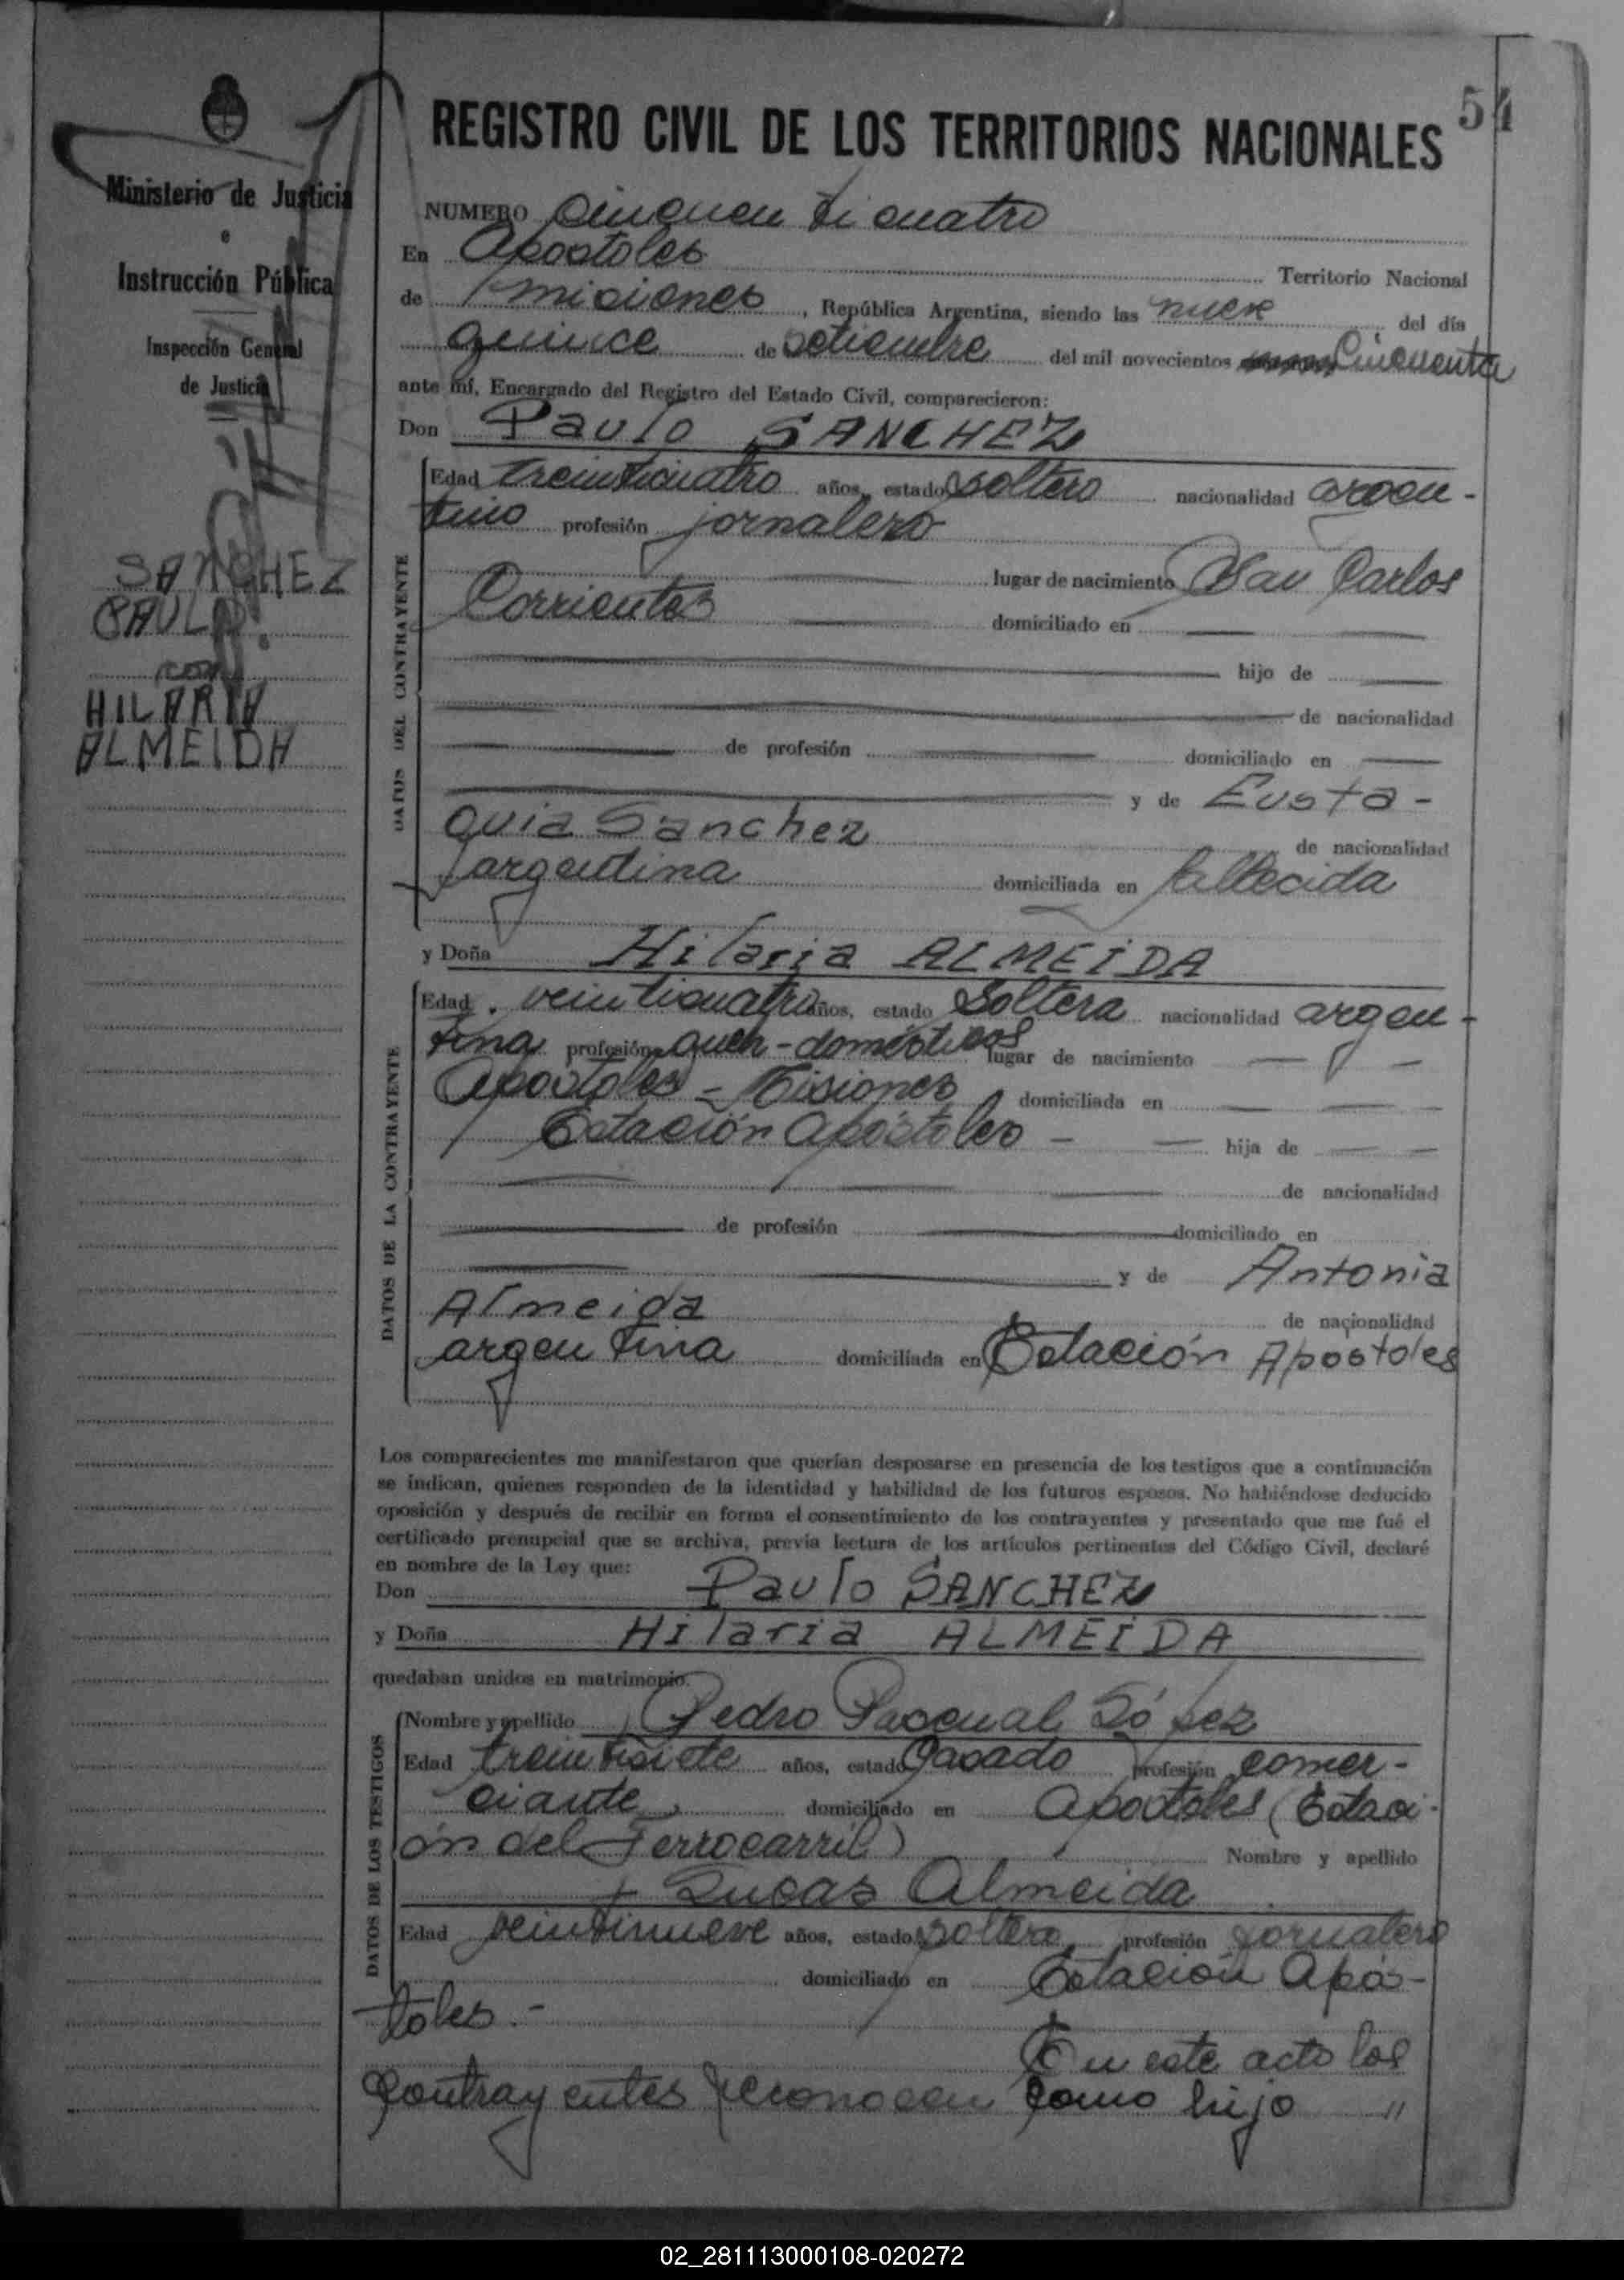 54
REGISTRO CIVIL DE LOS TERRITORIOS NACIONALES
Ministerio de Justicia
e
Instrucción Pública
Inspección General
de Justicia
SANCHEZ
PAULO
con
HILARIA
ALMEIDA
NUMERO Cincuenticuatro
En Apostoles Territorio Nacional
de Misiones, República Argentina, siendo las nueve del día
quince de setiembre del mil novecientos Cincuenta
ante mí, Encargado del Registro del Estado Civil, comparecieron:
Don Paulo SANCHEZ
DATOS DEL CONTRAYENTE
Edad treinticuatro años, estado soltero nacionalidad argen-
tino profesión jornalero
lugar de nacimiento San Carlos
Corrientes domiciliado en
hijo de
de nacionalidad
de profesión domiciliado en
y de Eusta-
quia Sanchez de nacionalidad
argentina domiciliada en fallecida
y Doña Hilaria ALMEIDA
DATOS DE LA CONTRAYENTE
Edad veinticuatro años, estado Soltera nacionalidad argen-
tina profesión queh-domésticos lugar de nacimiento
Apostoles - Misiones domiciliada en
Estación Apóstoles - hija de
de nacionalidad
de profesión domiciliado en
y de Antonia
Almeida de nacionalidad
argentina domiciliada en Estación Apostoles
Los comparecientes me manifestaron que querían desposarse en presencia de los testigos que a continuación
se indican, quienes responden de la identidad y habilidad de los futuros esposos. No habiéndose deducido
oposición y después de recibir en forma el consentimiento de los contrayentes y presentado que me fué el
certificado prenupcial que se archiva, previa lectura de los artículos pertinentes del Código Civil, declaré
en nombre de la Ley que:
Don Paulo SANCHEZ
y Doña Hilaria ALMEIDA
quedaban unidos en matrimonio.
DATOS DE LOS TESTIGOS
Nombre y apellido Pedro Pascual López
Edad treintisiete años, estado Casado profesión comer-
ciante domiciliado en Apostoles (Estaci-
ón del Ferrocarril) Nombre y apellido
Lucas Almeida
Edad veintinueve años, estado soltero profesión jornalero
domiciliado en Estación Após-
toles.-
En este acto los
contrayentes reconocen como hijo "
02_281113000108-020272